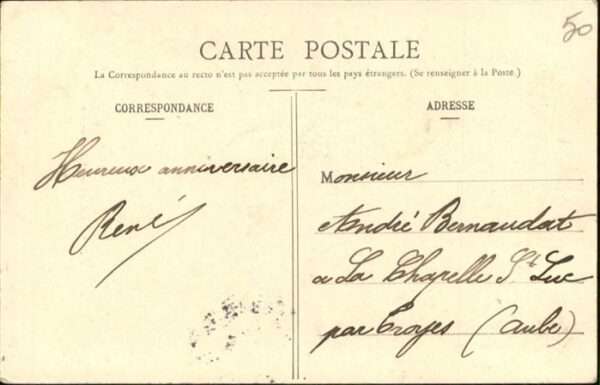 50
CARTE POSTALE
La Correspondance au recto n'est pas acceptée par tous les pays étrangers. (Se renseigner à la Poste.)
CORRESPONDANCE
ADRESSE
Heureux anniversaire
René
Monsieur
André Bernaudat
a La Chapelle St Luc
par Troyes (Aube)